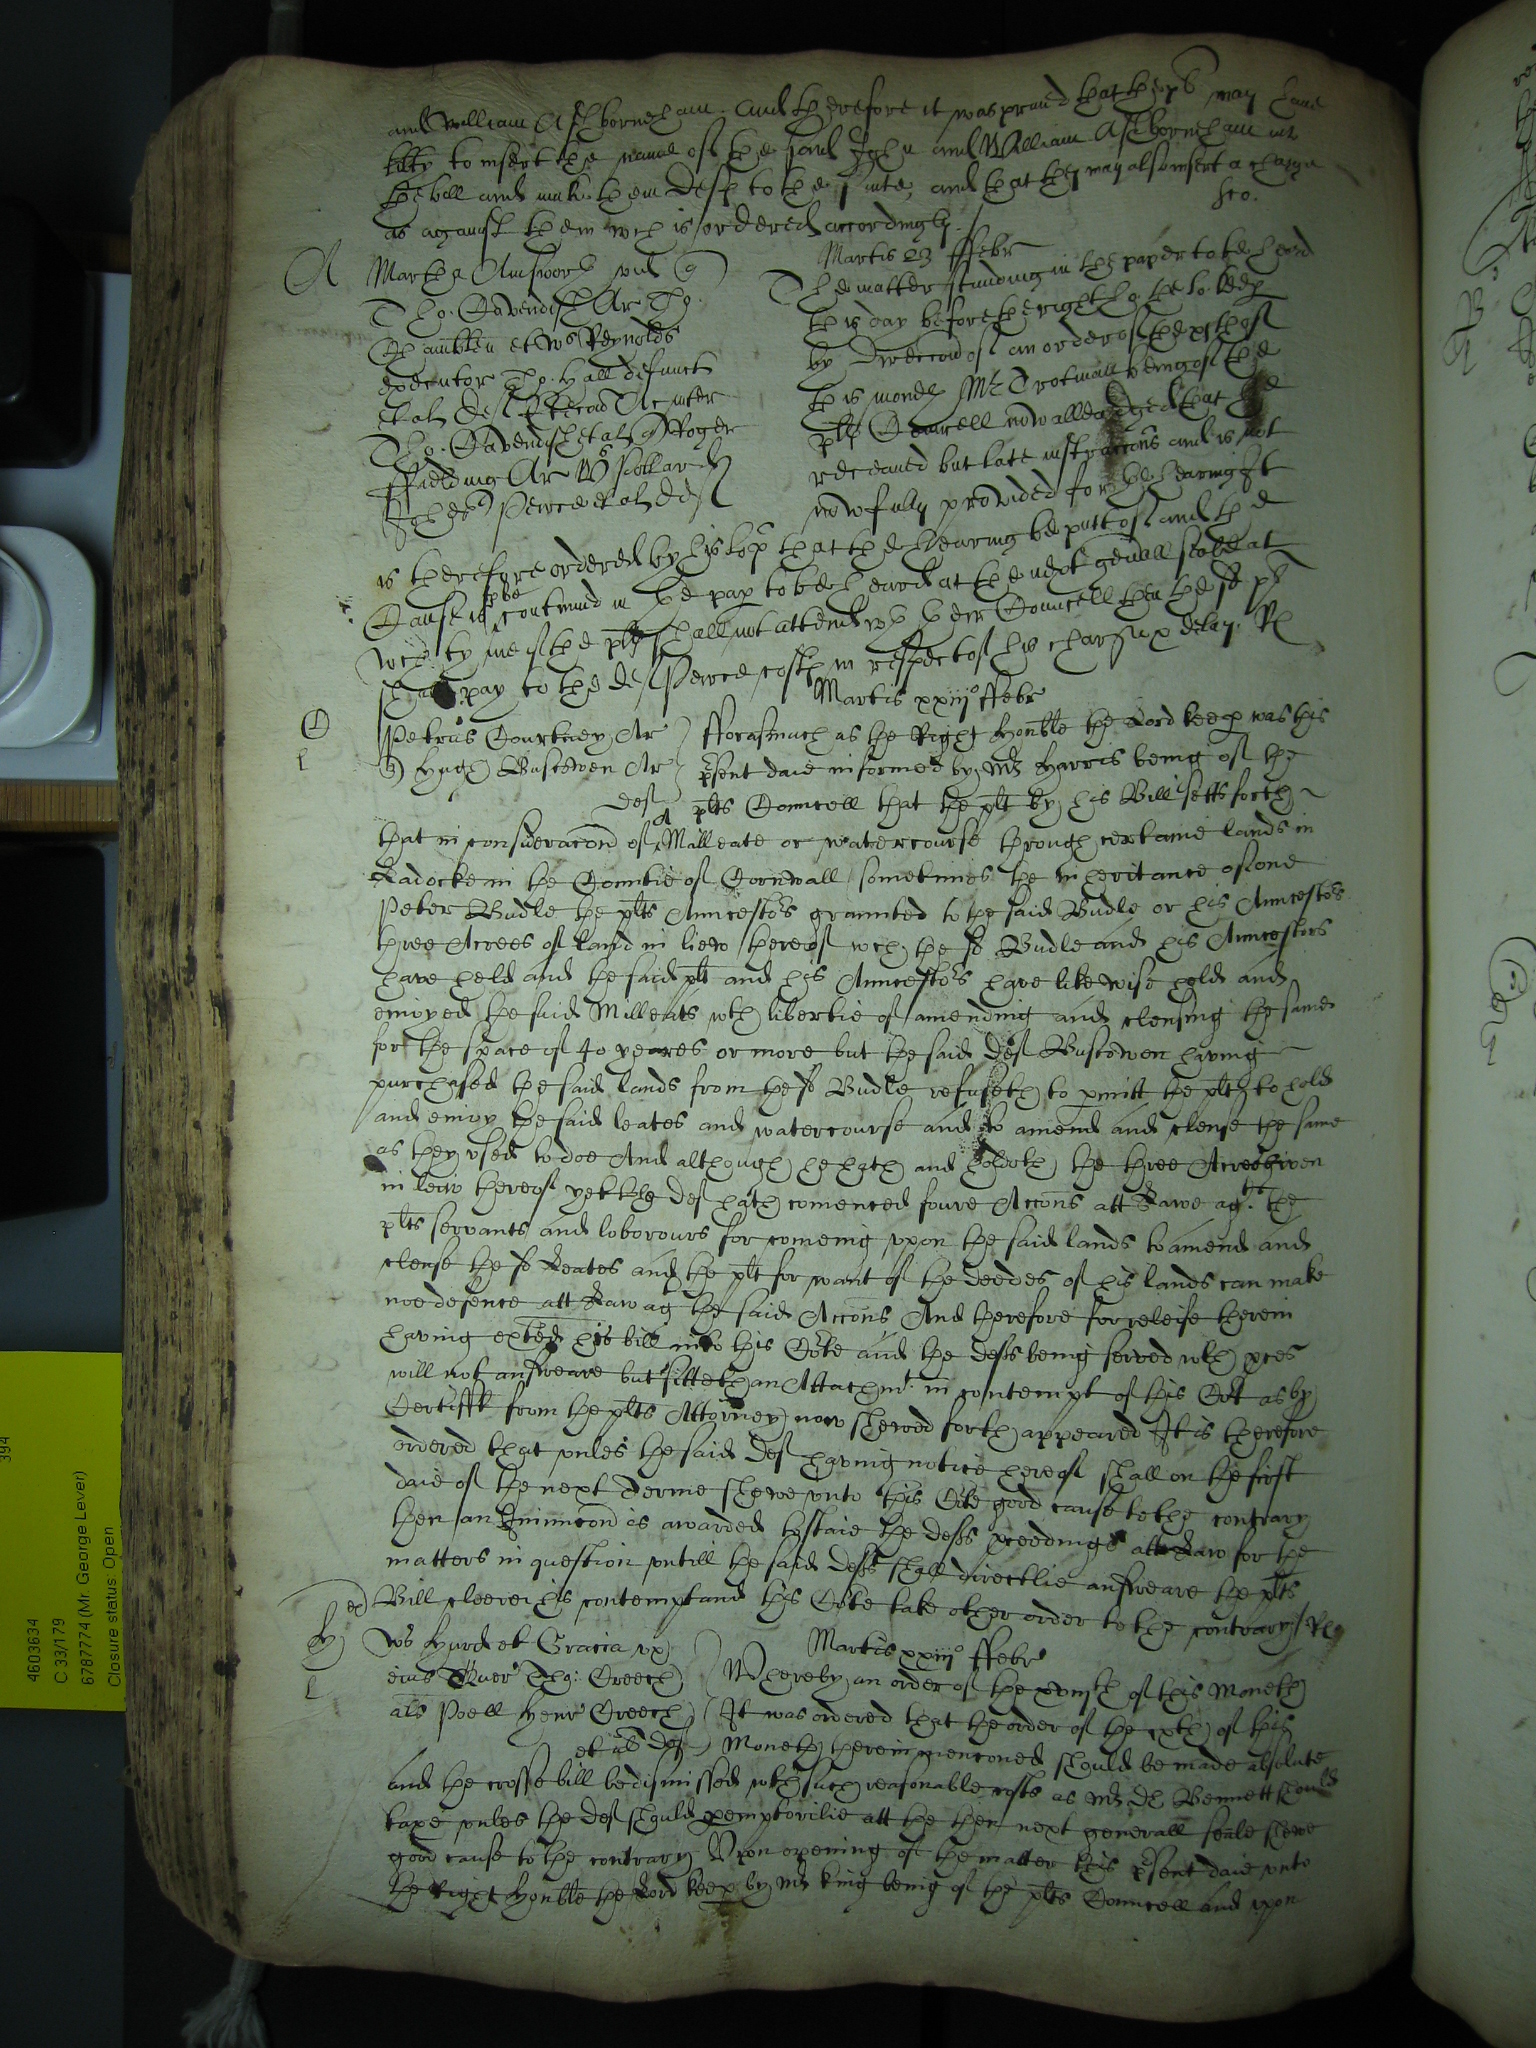 and William Ashborneham and therefore it was praied that the pls may have
libty to insert the name of the said John and William Ashborneham in
the bill and make them defts to the suite and that they may also insert a charge
as against them wch is ordered accordingly
Martis 23 ffebr
A
Martha Ainswort vid
Tho. Cavendish Ar Tho.
Chamblen et Ws Reynolds
executor Tho. Hall defunct
et al def
Tho. Cavendish et al Roger
ffielding Ar Ws Pollard
Pearce et al def
The matter standing in the paper to be heard
this day before the right ho. the lo. keep
by direccon of an order of the
this moneth Mr Trotman being of the
plts Councell now alleadged that he
receaved but late instruccons and is not
now fully provided for the hearing It
is therefore ordered by his lop that the hearing be putt of and the
Cause is to be continued in the pap to be heard at the next genall seale at
wch tyme if the plts shall not attend wth their Councell then the sd pl
shall pay to the def Pearce costs in respect of his charge & delay. Rl
Martis xxiijo ffebr
Petrus Courtney Ar
Hugh Buscowen Ar
def
fforasmuch as the Right honble the Lord keep was this
psent daie informed by Mr Harris being of the
plts Councell that the plt by his Bill setts forth
that in consideracon of a Mill eate or watercourse through certaine lands in
Ladocke in the Countie of Cornwall sometimes the inheritance of one
Peter Budle the plts Auncestors graunted to the said Budle or his Auncestors
three Acrees of land in liew thereof wch the sd Budle and his Auncestors
have held and the said plt and his Auncestors have likewise held and
enioyed the said Milleats wth libertie of amending and clensing the same
for the space of 40 yeares or more but the said def Buscowen having
purchased the said lands from the sd Budle refuseth to pmitt the plt to hold
and enioy the said leates and watercourse and to amend and clense the same
as they used to doe And although he hath and holdeth the three Acres given
in leiw thereof yet the def hath comenced foure Accons att Lawe agt the
plts servants and loborours for comeing upon the said lands to amend and
clense the sd Leates and the plt for want of the deedes of his lands can make
noe defence att Law ag the said Accons And therefore for releife therein
having exted his bill into this Corte and the defts being served wth pces
will not answeare but sitteth an Attachmt in contempt of this Cort as by
Certifft from the plts Attorney now shewed forth appeared It is therefore
ordered that unles the said def having notice hereof shall on the first
daie of the next Terme shewe unto this Corte good cause to the contrary
then an Iniunccon is awarded to staie the defts pceedings att Law for the
matters in question untill the said deft shall directlie answeare the plts
Bill cleere his contempt and this Corte take other order to the contrary Rl
Martis xxiijo ffebr
Ws Hurd et Gracia ux
eius Quer Tho: Creech
als Poell Henr Creech
et al def
Whereby an order of the xviijth of this Moneth
It was ordered that the order of the ixth of this
Moneth therein menconed should be made absolute
and the crosse bill be dismissed wth such reasonable costs as Mr Dr Bennett should
taxe unles the def should pemptorilie att the then next generall seale shew
good cause to the contrary Upon opening of the matter this psent daie unto
the Right honble the Lord keep by Mr King being of the plts Councell and upon
394
4603634
C 33/179
6787774 (Mr. George Lever)
Closure status: Open